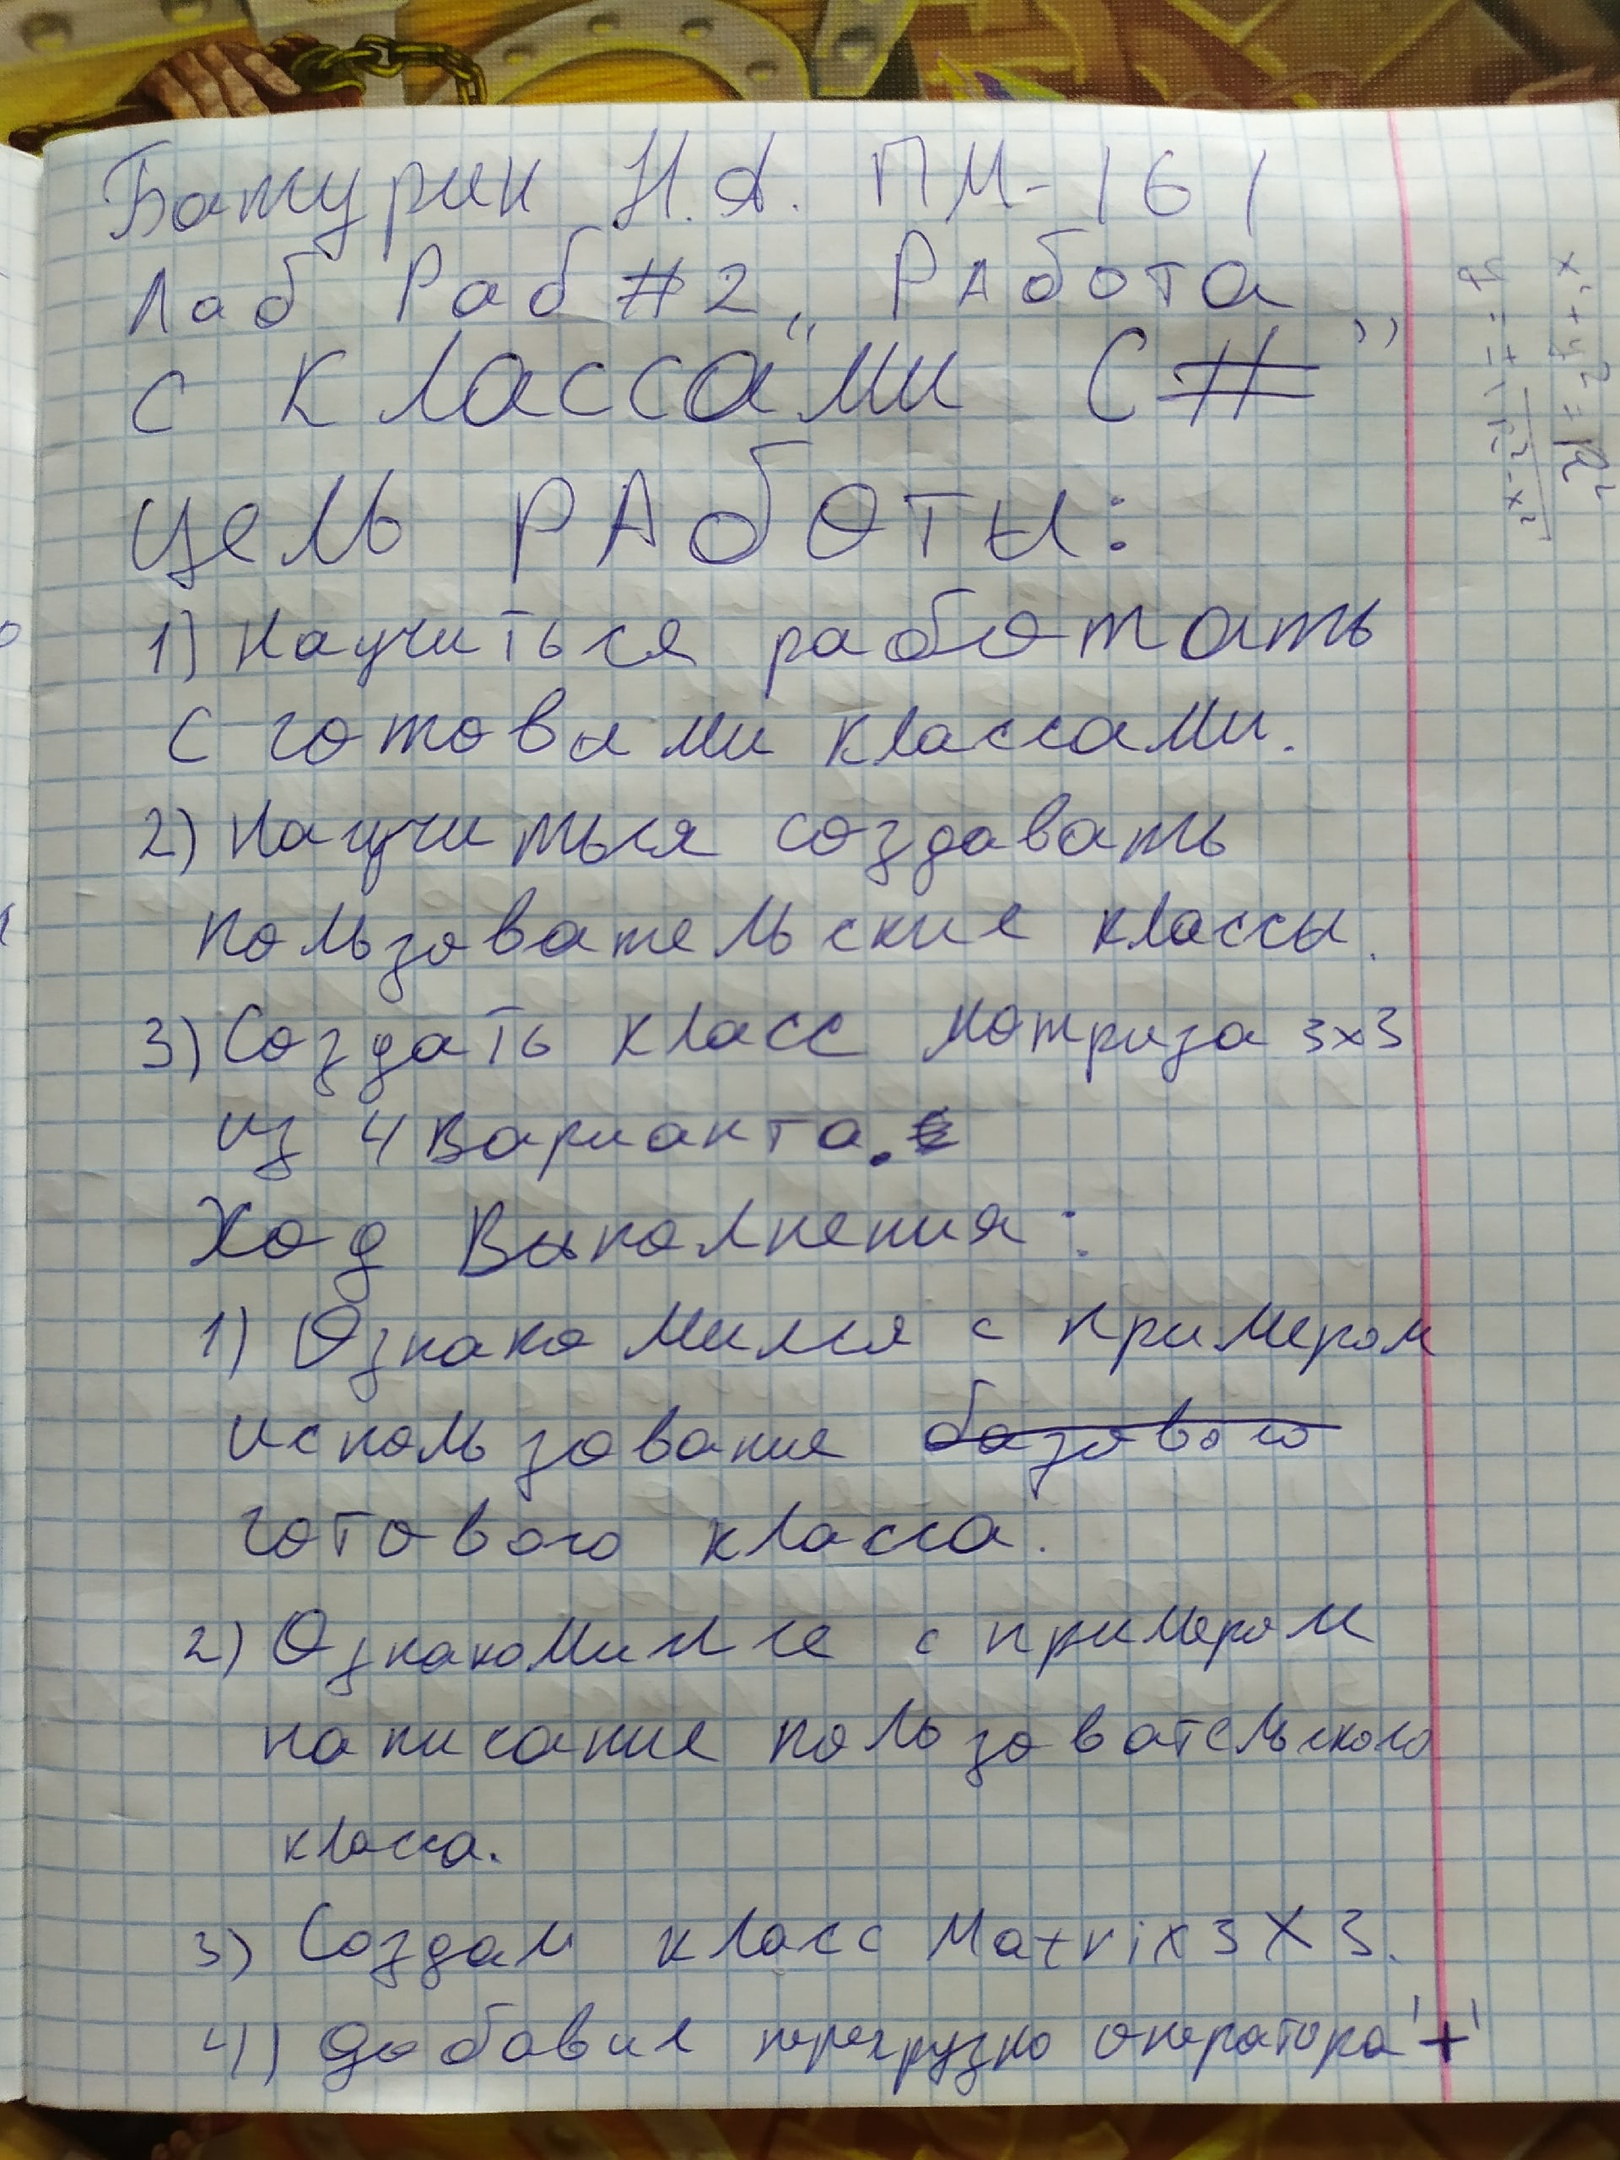 Батурин Н.А. ПМ-161
Лаб Раб #2 „Работа
с классами C#”
Цель РАботы:
1) Научиться работать
с готовыми классами.
2) Научиться создавать
пользовательские классы.
3) Создать класс Матриза 3х3
из 4 варианта.
Ход Выполнения:
1) Ознакомился с примером
использование базового
готового класса.
2) Ознакомился с примером
написание пользовательского
класса.
3) Создал класс Matrix3X3.
4) Добавил оператора '+'